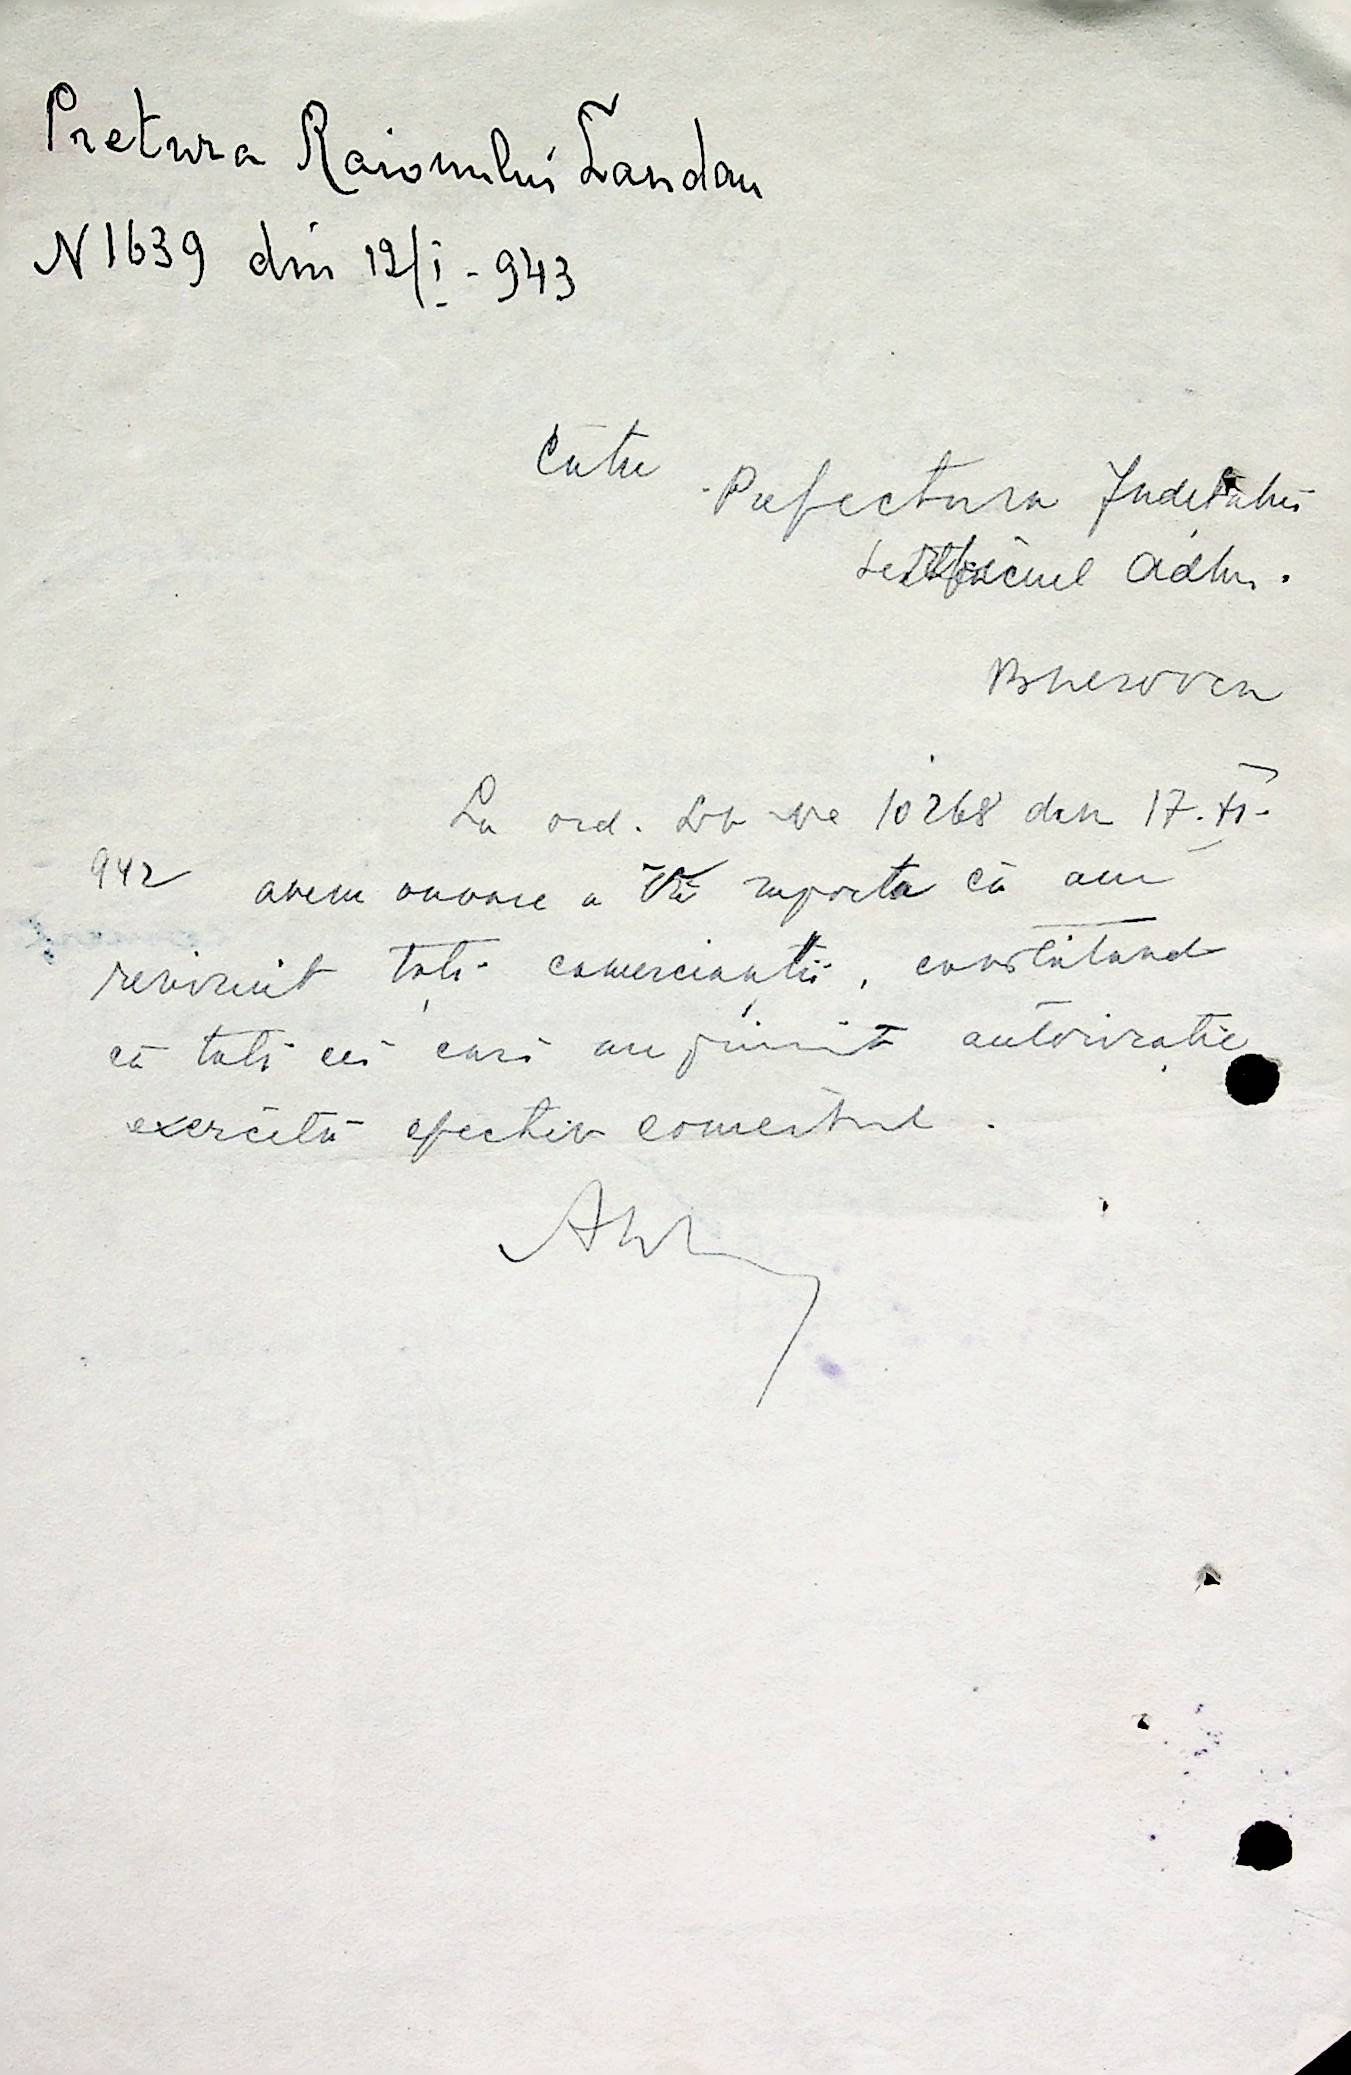 Pretura Raionului Landau
N 1639 din 12/I - 943
Către
Prefectura Judetului
Serviciul Adm.
Beresovca
La ord. Dv No 10268 din 17.XI.
942 avem onoare a Vă raporta că am
revizuit toți comercianții, constatând
că toți cei cari au primit autorizație
exercită efectiv comerțul.